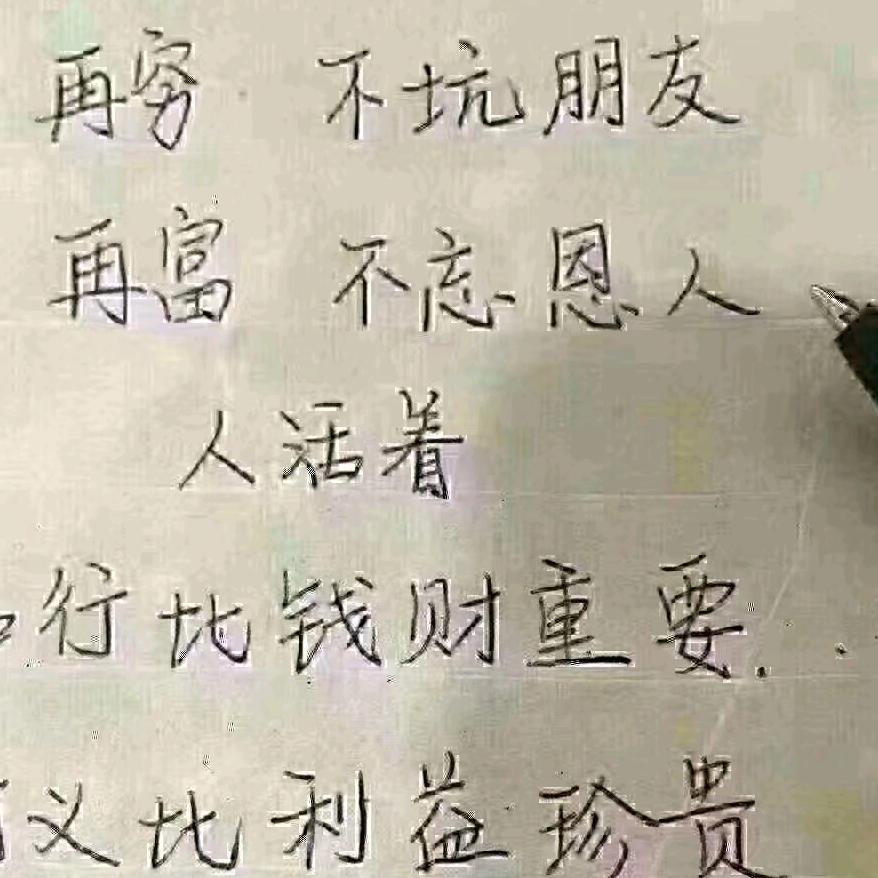 再穷 不坑朋友
再富 不忘恩人
人活着
行比钱财重要..
义比利益珍贵